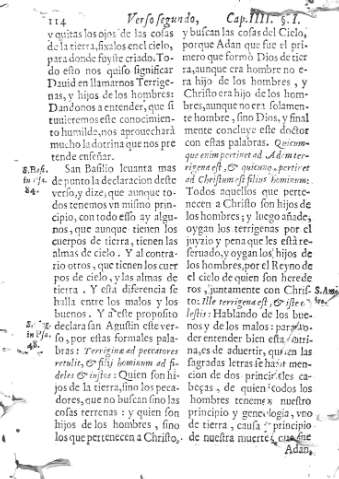 114 Verso segundo, Cap. IIII. §. I.
y quitas los ojos de las cosas
de la tierra, fixalos en el cielo,
para donde fuyste criado. To-
do esto nos quiso significar
David en llamarnos Terrige-
nas, y hijos de los hombres:
Dandonos a entender, que si
tuuieremos este conocimien-
to humilde, nos aprouechará
mucho la dotrina que nos pre
tende enseñar.
San Basilio leuanta mas
de punto la declaracion deste
verso, y dize, que aunque to-
dos tenemos vn mismo prin-
cipio, con todo esso ay algu-
nos, que aunque tienen los
cuerpos de tierra, tienen las
almas de cielo. Y al contra-
rio otros, que tienen los cuer
pos de cielo, y las almas de
tierra. Y esta diferencia se
halla entre los malos y los
buenos. Y a este proposito
declara san Agustin este ver-
so, por estas formales pala-
bras: Terriginæ ad peccatores
retulit, & filij hominum ad fi-
deles & iustos: Quien son hi-
jos de la tierra, sino los peca-
dores, que no buscan sino las
cosas terrenas: y quien son
hijos de los hombres, sino
los que pertenecen a Christo,
S. Basi.
84.
48.
y buscan las cosas del Cielo,
porque Adan que fue el pri-
mero que formò Dios de tier
ra, aunque era hombre no e-
ra hijo de los hombres, y
Christo era hijo de los hom-
bres, aunque no era solamen-
te hombre, sino Dios, y final
mente concluye este doctor
con estas palabras. Quicum-
que enim pertinet ad Adem ter-
rigena est, & quicunq, pertinet
ad Christum est filius hominum:
Todos aquellos que perte-
necen a Christo son hijos de
los hombres; y luego añade,
oygan los terrigenas por el
juyzio y pena que les está re-
seruado, y oygan los hijos de
los hombres, por el Reyno de
el cielo de quien son herede
ros, juntamente con Chris-
to: Ille terrigena est, & iste cæ
lestis: Hablando de los bue-
nos y de los malos: para
der entender bien esta
na, es de aduertir, quien las
sagradas letras se haze men-
cion de dos principales ca-
beças, de quien todos los
hombres tenemos nuestro
principio y genealogia, vno
de tierra, causa y principio
de nuestra muerte,
Adan,